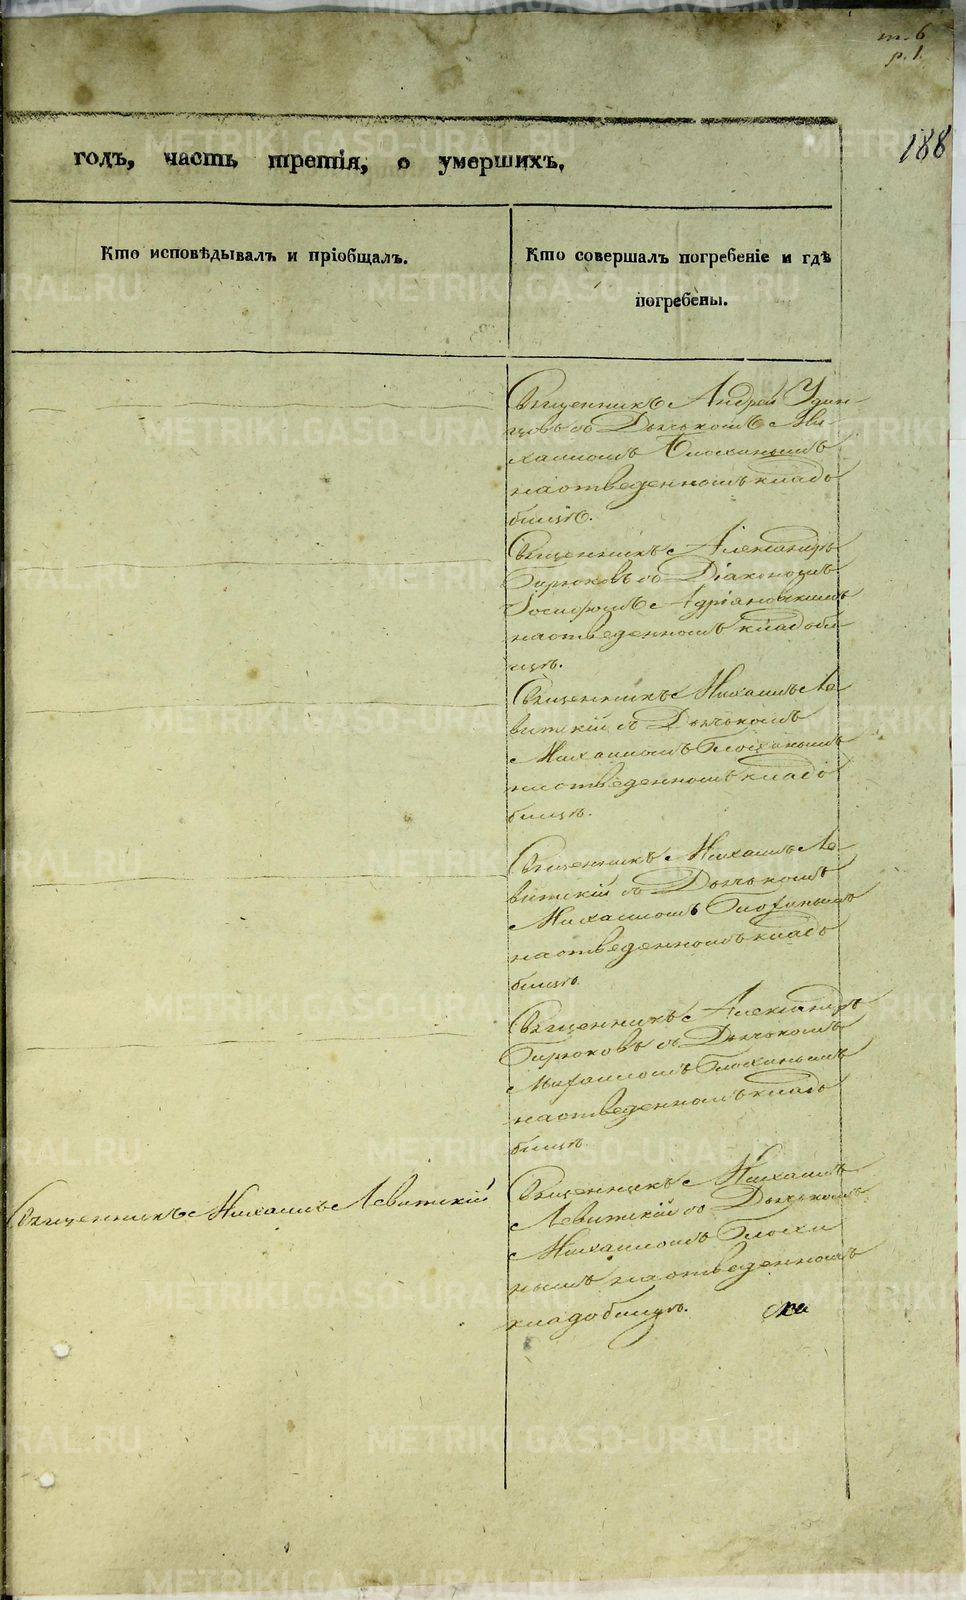 т. 6
р. 1.
188
годъ, часть третія, о умершихъ.
Кто исповѣдывалъ и пріобщалъ.
Кто совершалъ погребеніе и гдѣ
погребены.
Священникъ Андрей Удин-
цовъ съ Дьячкомъ Ми-
хаиломъ Блохинымъ
на отведенномъ кладо
бищѣ.
Священникъ Александръ
Бирюковъ со Діакономъ
Іосифомъ Адріановскимъ
на отведенномъ кладоби
щѣ.
Священникъ Михаилъ Ле
витскій съ Дьячкомъ
Михаиломъ Блохинымъ
на отведенномъ кладо
бищѣ.
Священникъ Михаилъ Ле
витскій съ Дьячкомъ
Михаиломъ Блохинымъ
на отведенномъ кладо
бищѣ.
Священникъ Александръ
Бирюковъ съ Дьячкомъ
Михаиломъ Блохинымъ
на отведенномъ кладо
бищѣ.
Священникъ Михаилъ Левитскій
Священникъ Михаилъ
Левитскій съ Дьячкомъ
Михаиломъ Блохи
нымъ на отведенномъ
кладобищѣ.
METRIKI.GASO-URAL.RU